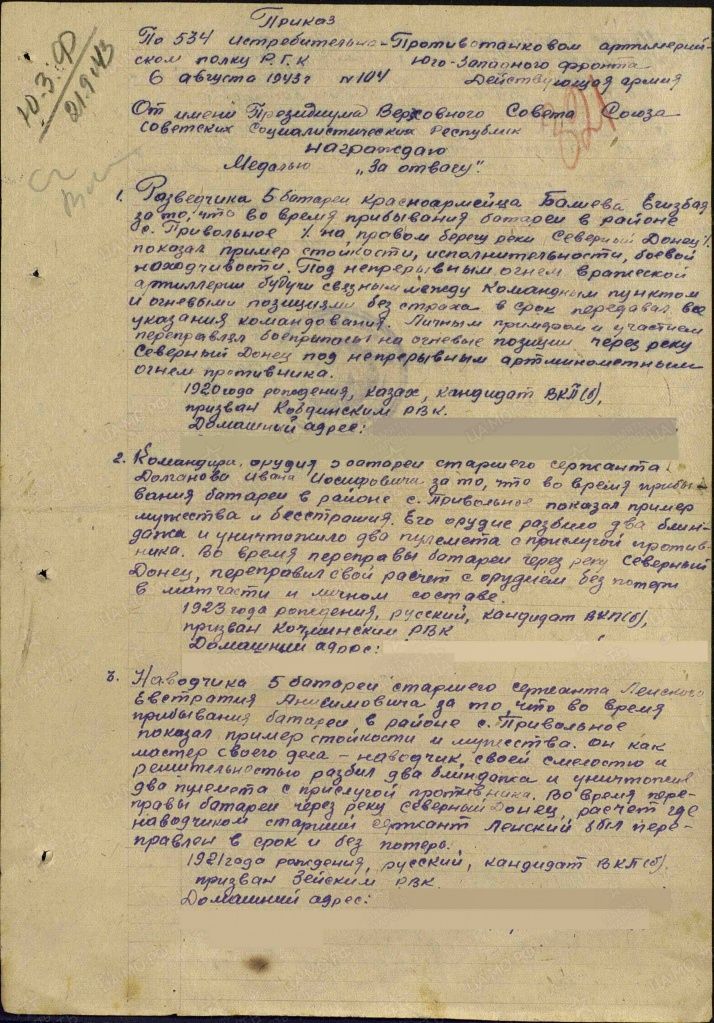 Приказ
По 534 Истребительно-Противотанковом артиллерий-
ском полку Р.Г.К Юго-Западного фронта
6 августа 1943г №104 Действующая армия
10.3.
21.9.43
От имени Президиума Верховного Совета Союза
Советских Социалистических Республик
награждаю
Медалью „За отвагу":
1. Разведчика 5 батареи красноармейца Балиева Егизбая
за то, что во время прибывания батареи в районе
с. Привольное на правом берегу реки Северный Донец
показал пример стойкости, исполнительности, боевой
находчивости. Под непрерывным огнем вражеской
артиллерии будучи связным между командным пунктом
и огневыми позициями без страха в срок передавал все
указания командования. Личным примером и участием
переправлял боеприпасы на огневые позиции через реку
Северный Донец под непрерывным артминометным
огнем противника.
1920 года рождения, казах, кандидат ВКП(б),
призван Кобдинским РВК.
Домашний адрес:
2. Командира орудия 5 батареи старшего сержанта
Долганова Ивана Иосифовича за то, что во время прибы-
вания батареи в районе с. Привольное показал пример
мужества и бесстрашия. Его орудие разбило два блин-
дажа и уничтожило два пулемета с прислугой против-
ника. Во время переправы батареи через реку Северный
Донец, переправил свой расчет с орудием без потери
в матчасти и личном составе.
1923 года рождения, русский, кандидат ВКП(б),
призван РВК
Домашний адрес:
3. Наводчика 5 батареи старшего сержанта Ленского
Евстратия Анисимовича за то, что во время
прибывания батареи в районе с. Привольное
показал пример стойкости и мужества. Он как
мастер своего дела - наводчик, своей смелостью и
решительностью разбил два блиндажа и уничтожил
два пулемета с прислугой противника. Во время пере-
правы батареи через реку Северный Донец, расчет где
наводчиком старший сержант Ленский был пере-
правлен в срок и без потерь.
1921 года рождения, русский, кандидат ВКП(б).
призван Зейским РВК.
Домашний адрес: